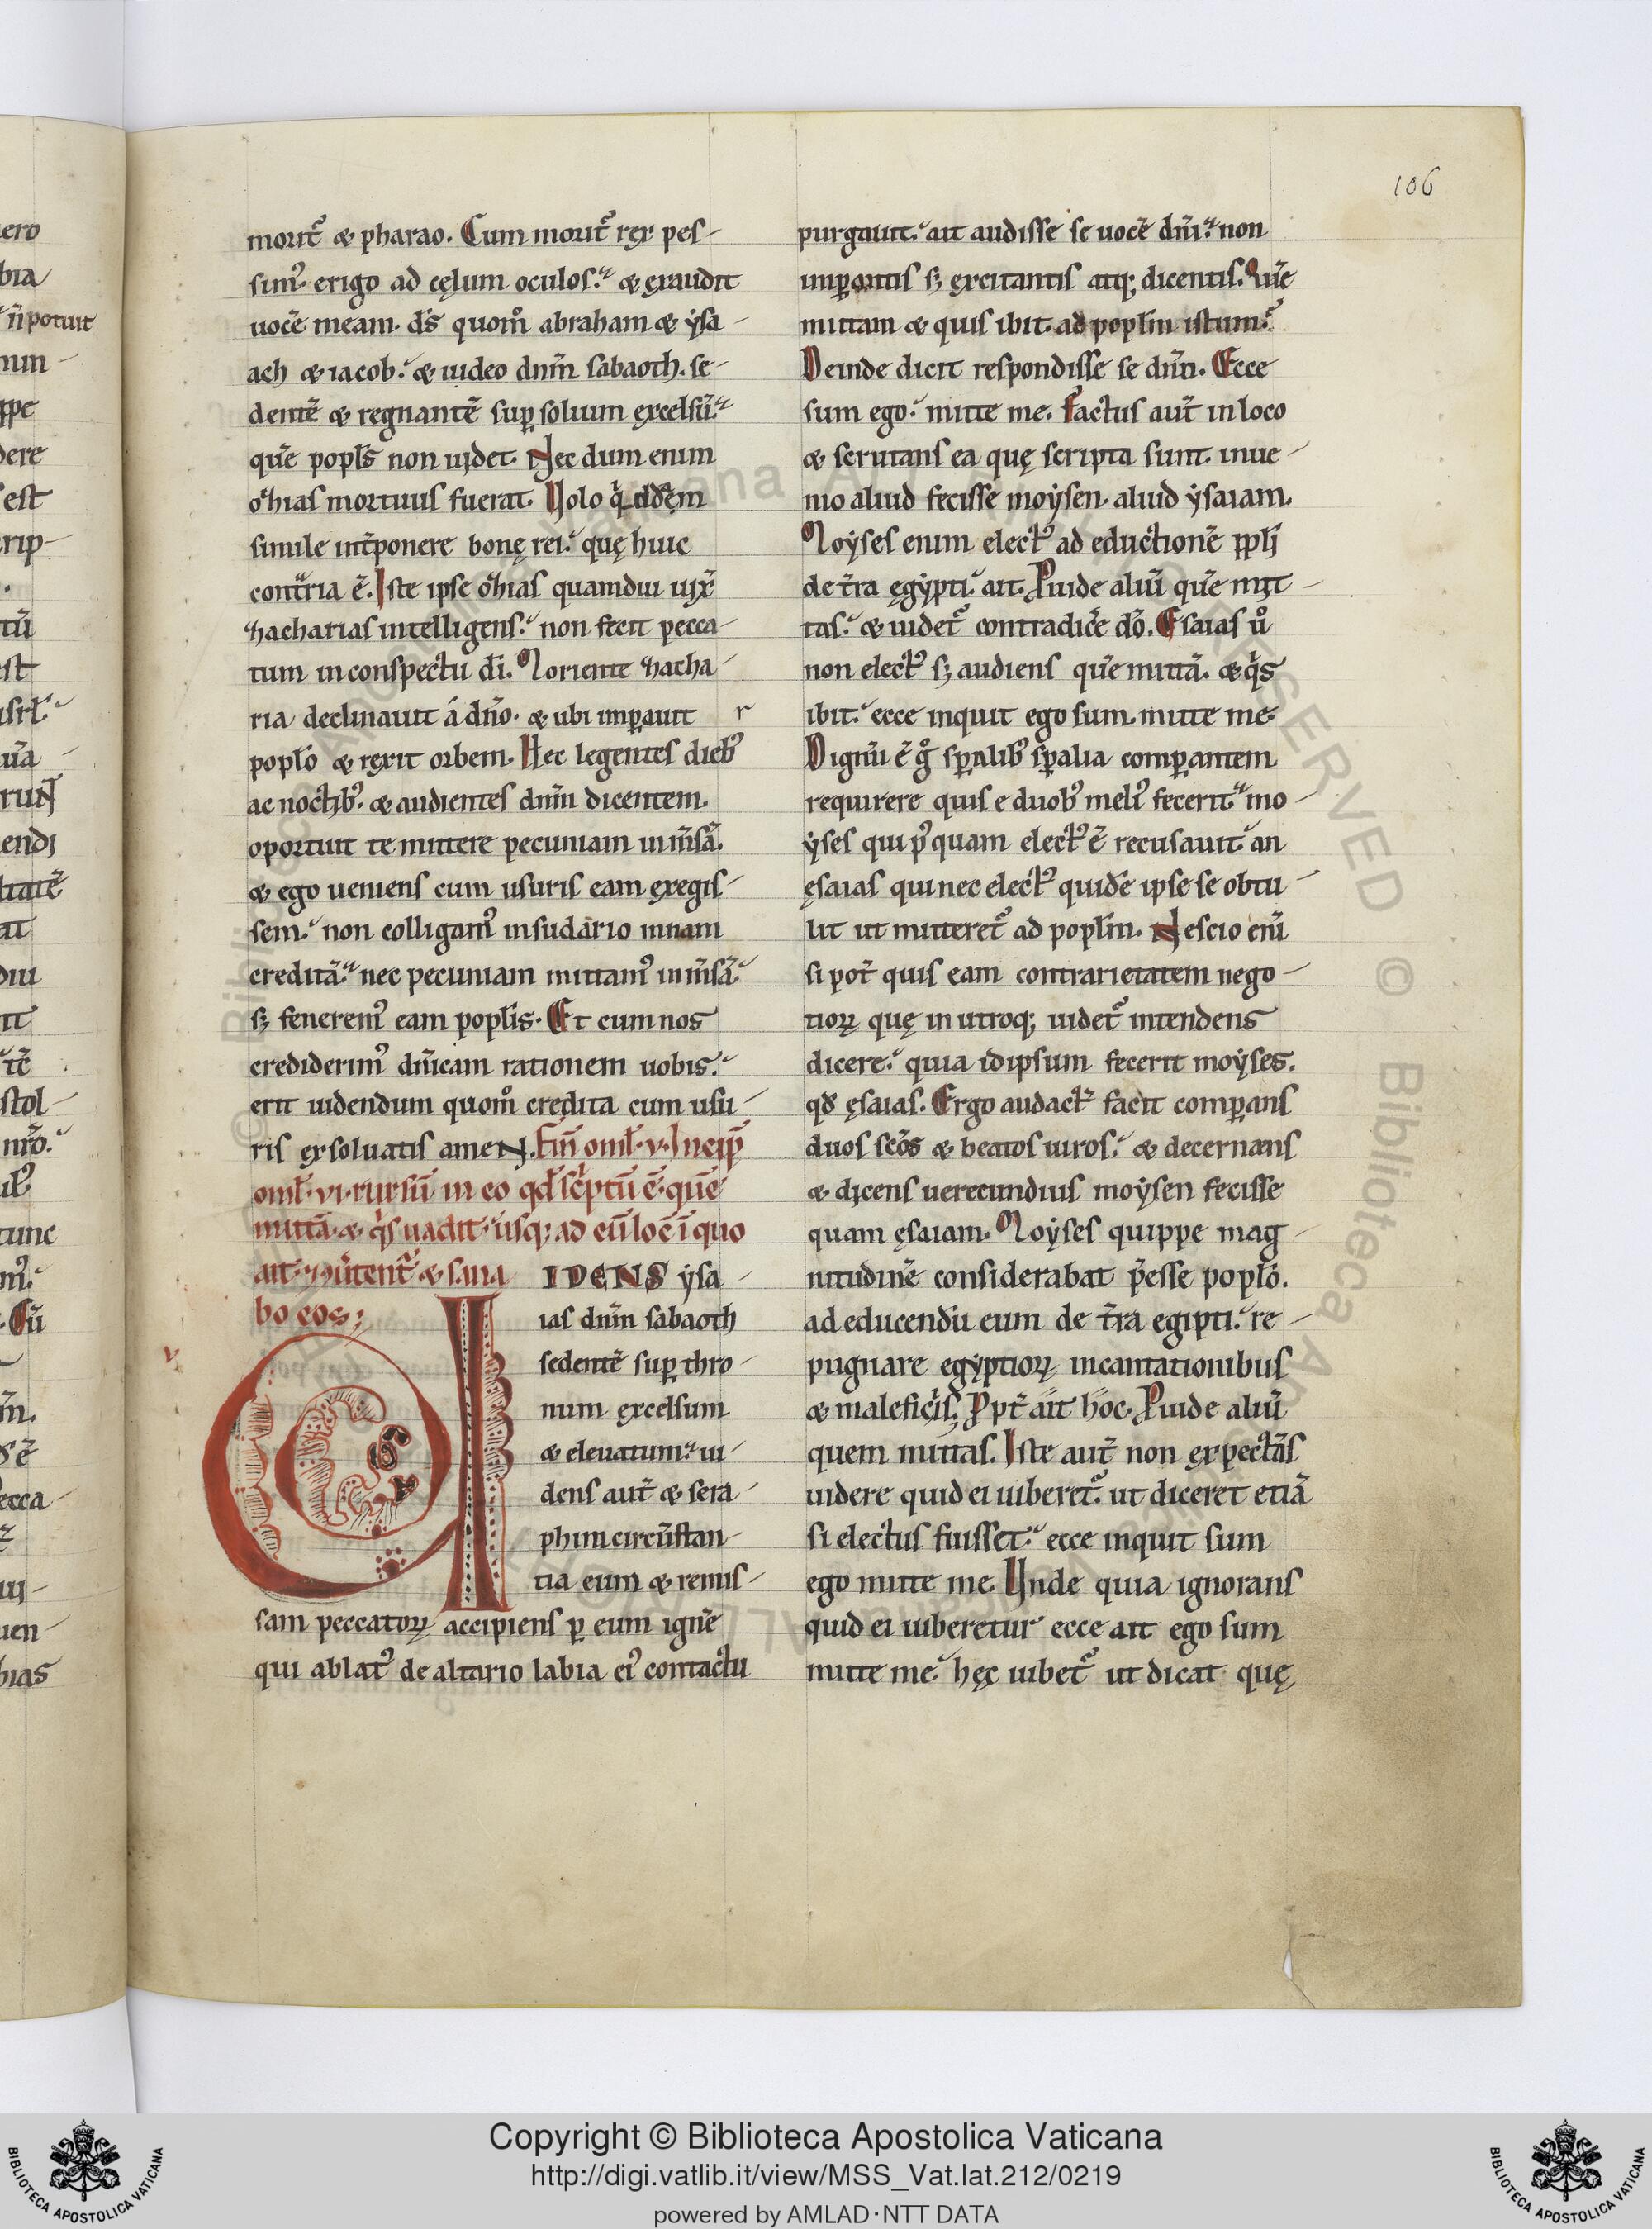 106
morit᷑ & pharao. Cum morit᷑ rex pes-
sim᷒. erigo ad cęlum oculos. & exaudit
uocē meam. ds̄ quom̊ abraham & ẏsa-
ach & iacob. & uideo dnm̄ sabaoth. se-
dentē & regnantē suꝑ solium excelsū.
quē popłs non uidet. Nec dum enim
oͨhias mortuus fuerat. Nolo qͥddem
simile int̄ponere bonę rei. quę huic
contͣria ē. Iste ipse oͨhias quamdiu uix̄
zacharias intelligens. non fecit pecca-
tum in conspectu di̅. Moriente zacha-
ria declinauit á dn̄o. & ubi imꝑauit r
popło & rexit orbem. Hec legentes dieb᷒
ac noctib᷒. & audientes dnm̄ dicentem.
oportuit te mittere pecuniam in m̄sā.
& ego ueniens cum usuris eam exegis-
sem. non colligam᷒ in sudario mnam
creditā. nec pecuniam mittam᷒ in m̄sā.
sꝫ fenerem᷒ eam popłis. Et cum nos
crediderim᷒ dn̄icam rationem uobis.
erit uidendum quom̊ credita cum usu-
ris exsoluatis ameN. Fin̄ omł. v. Incip̄
omł. vi. rursū in eo qd̄ scͥptū ē. quē
mittā. & qͥs uadit. usqꝫ ad eū locē ī quo
ait. & sana
bo eos;
v
IDENS ẏsa-
ias dnm̄ sabaoth
sedentē suꝑ thro-
num excelsum
& eleuatum. ui-
dens aut̄ & sera-
phim circūstan-
tia eum & remis-
sam peccatoꝝ accipiens ꝑ eum ignē
qui ablat᷒ de altario labia ei᷒ contactu
purgauit. ait audisse se uocē dn̄i. non
imꝑantis sꝫ excitantis atqꝫ dicentis. Quē
mittam & quis ibit. ad popłm istum.
Deinde dicit respondisse se dn̄o. Ecce
sum ego. mitte me. Factus aut̄ in loco
& scrutans ea quę scripta sunt. inue-
nio aliud fecisse moẏsen. aliud ẏsaiam.
Moẏses enim elect᷒ ad eductionē ppłi
de t̄ra ęgẏpti. ait. Puide aliū quē mit-
tas. & uidet᷑ contradicēe dō. Esaias ů
non elect᷒ sꝫ audiens quē mittā. & qͥs
ibit. ecce inquit ego sum. mitte me.
Dignū ē gͦ sp̄alib᷒ sp̄alia comꝑantem
requirere quis e duob᷒ meli᷒ fecerit. mo-
ẏses qui p᷒quam elect᷒ ē recusauit. an
ęsaias qui nec elect᷒ quidē ipse se obtu-
lit ut mitteret᷑ ad popłm. Nescio enī
si pot̄ quis eam contrarietatem nego-
tioꝝ quę in utroqꝫ uidet᷑ intendens
dicere. quia idipsum fecerit moẏses.
qđ ęsaias. Ergo audact᷑ facit comꝑans
duos scōs & beatos uiros. & decernens
& dicens uerecundius moẏsen fecisse
quam ęsaiam. Moẏses quippe mag-
nitudinē considerabat p̄esse popło.
ad educendū eum de t̄ra egipti. re-
pugnare egẏptioꝝ incantationibus
& maleficͥis. Ppt̄ ait hoc. Puide aliū
quem mittas. Iste aut̄ non expectās
uidere quid ei iuberet᷑. ut diceret etiā
si electus fuisset. ecce inquit sum
ego mitte me. Unde quia ignorans
quid ei iuberetur ecce ait ego sum
mitte me. hęc iubet᷑ ut dicat quę
Copyright © Biblioteca Apostolica Vaticana
http://digi.vatlib.it/view/MSS_Vat.lat.212/0219
powered by AMLAD·NTT DATA